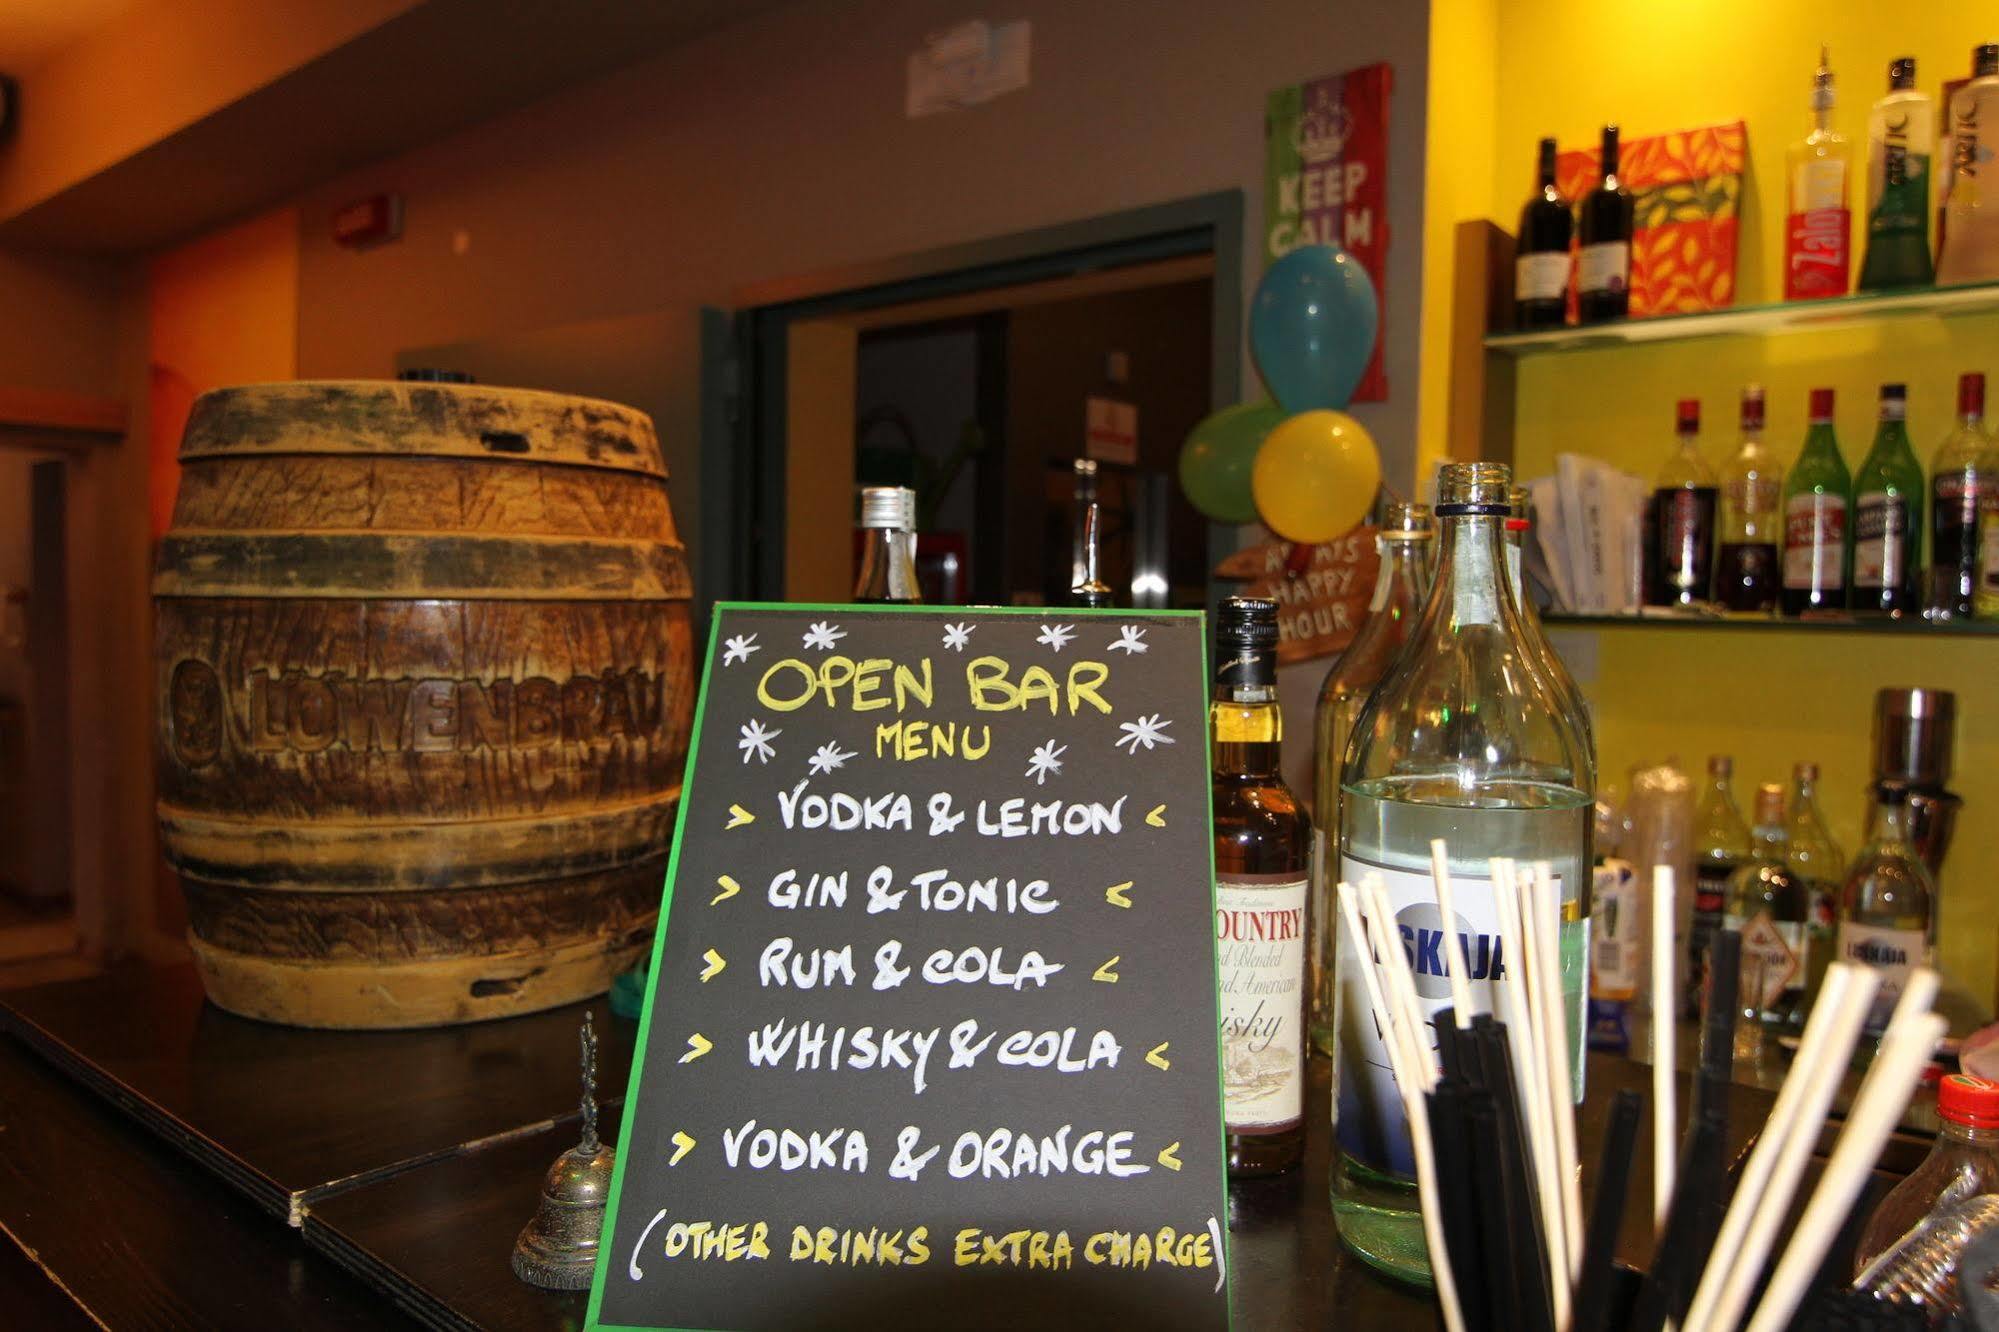 KEEP
CALM
Zalou
ARTIC
ARTIC
HAPPY
HOUR
LÖWENBRÄU
OPEN BAR
MENU
> VODKA & LEMON <
> GIN & TONIC <
> RUM & COLA <
> WHISKY & COLA <
> VODKA & ORANGE <
(OTHER DRINKS EXTRA CHARGE)
OUNTRY
Blended
American
isky
SKAJA